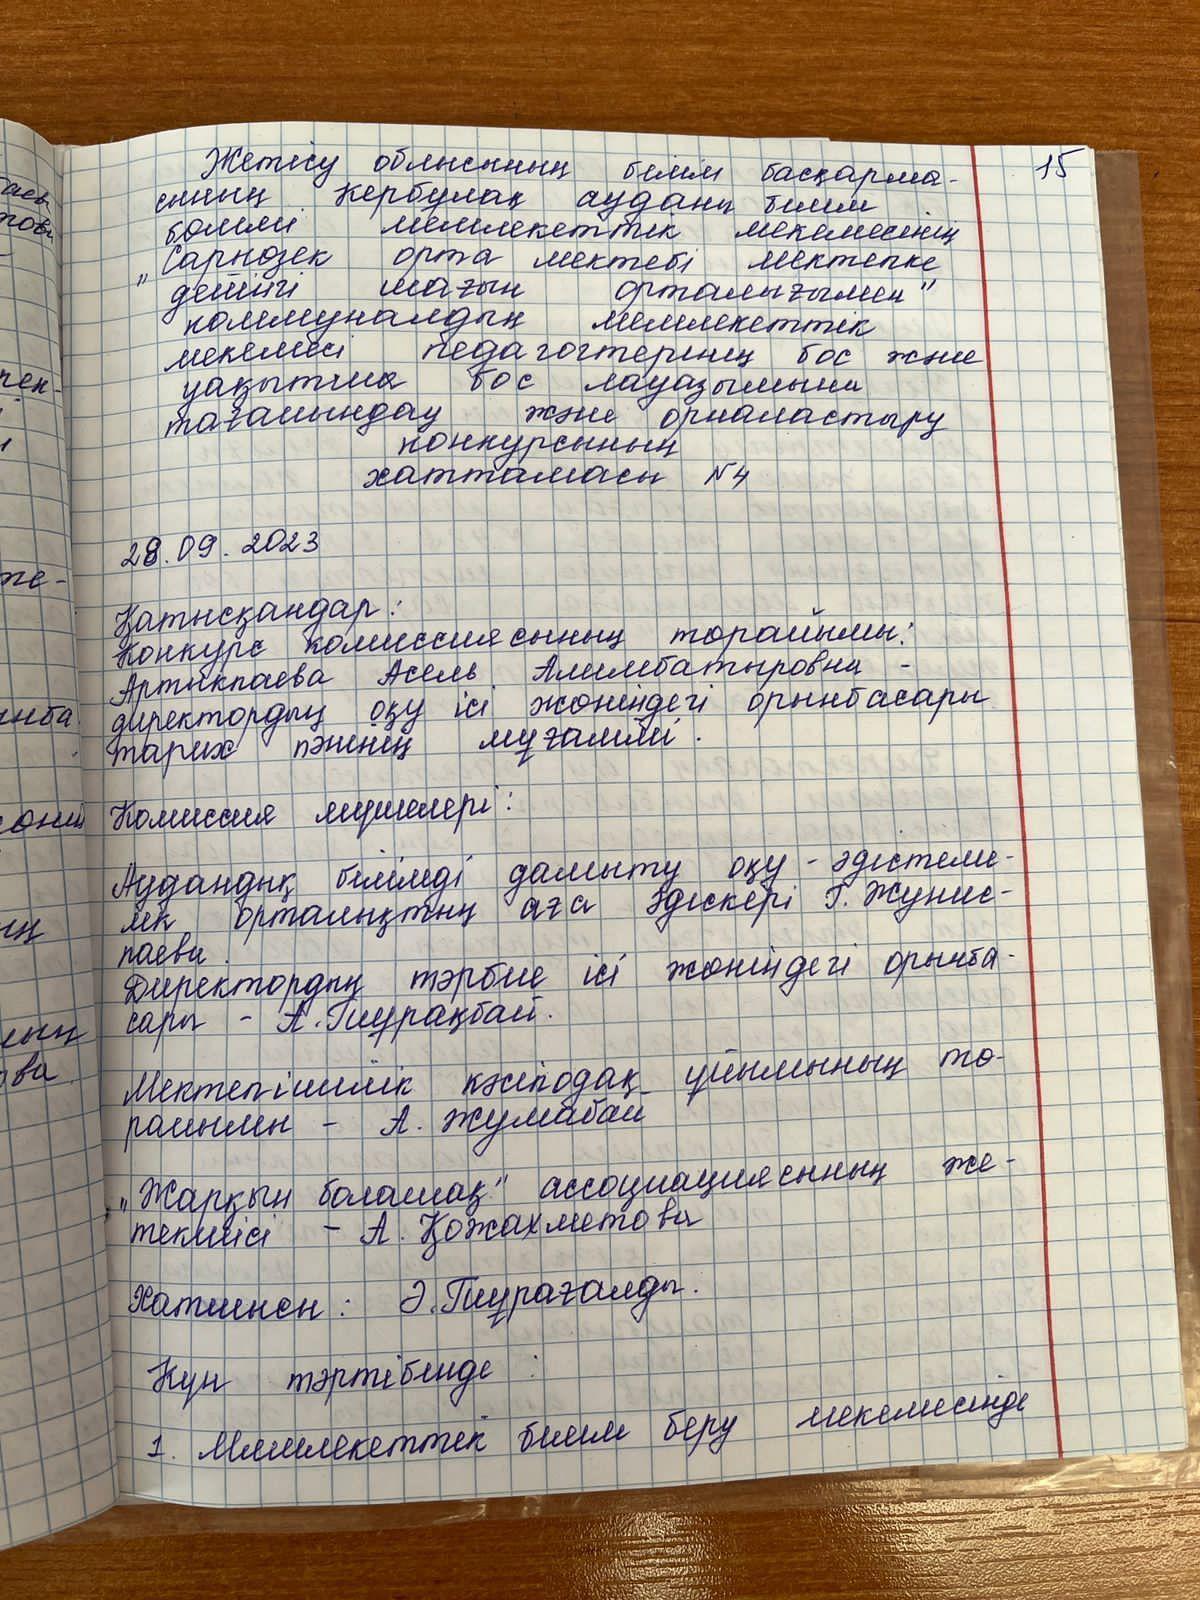 15
Жетісу облысының білім басқарма-
сының Кербұлақ ауданы білім
бөлімі мемлекеттік мекемесінің
"Сарыөзек орта мектебі мектепке
дейінгі шағын орталығымен"
коммуналдық мемлекеттік
мекемесі педагогтерінің бос және
уақытша бос лауазымына
тағайындау және орналастыру
конкурсының
хаттамасы №4
28.09.2023
Қатысқандар:
Конкурс комиссиясының төрайымы:
Артыкпаева Асель Алимбатыровна -
директордың оқу ісі жөніндегі орынбасары
тарих пәнінің мұғалімі.
Комиссия мүшелері:
Аудандық білімді дамыту оқу - әдістеме-
лік орталықтың аға әдіскері Г. Жунис-
паева.
Директордың тәрбие ісі жөніндегі орынба-
сары - А. Тұрақбай.
Мектепішілік кәсіподақ ұйымының тө-
райымы - А. Жумабай
"Жарқын болашақ" ассоциациясының же-
текшісі - А. Қожахметова
Хатшы: Ә. Тұрағалды.
Күн тәртібінде:
1. Мемлекеттік білім беру мекемесінде